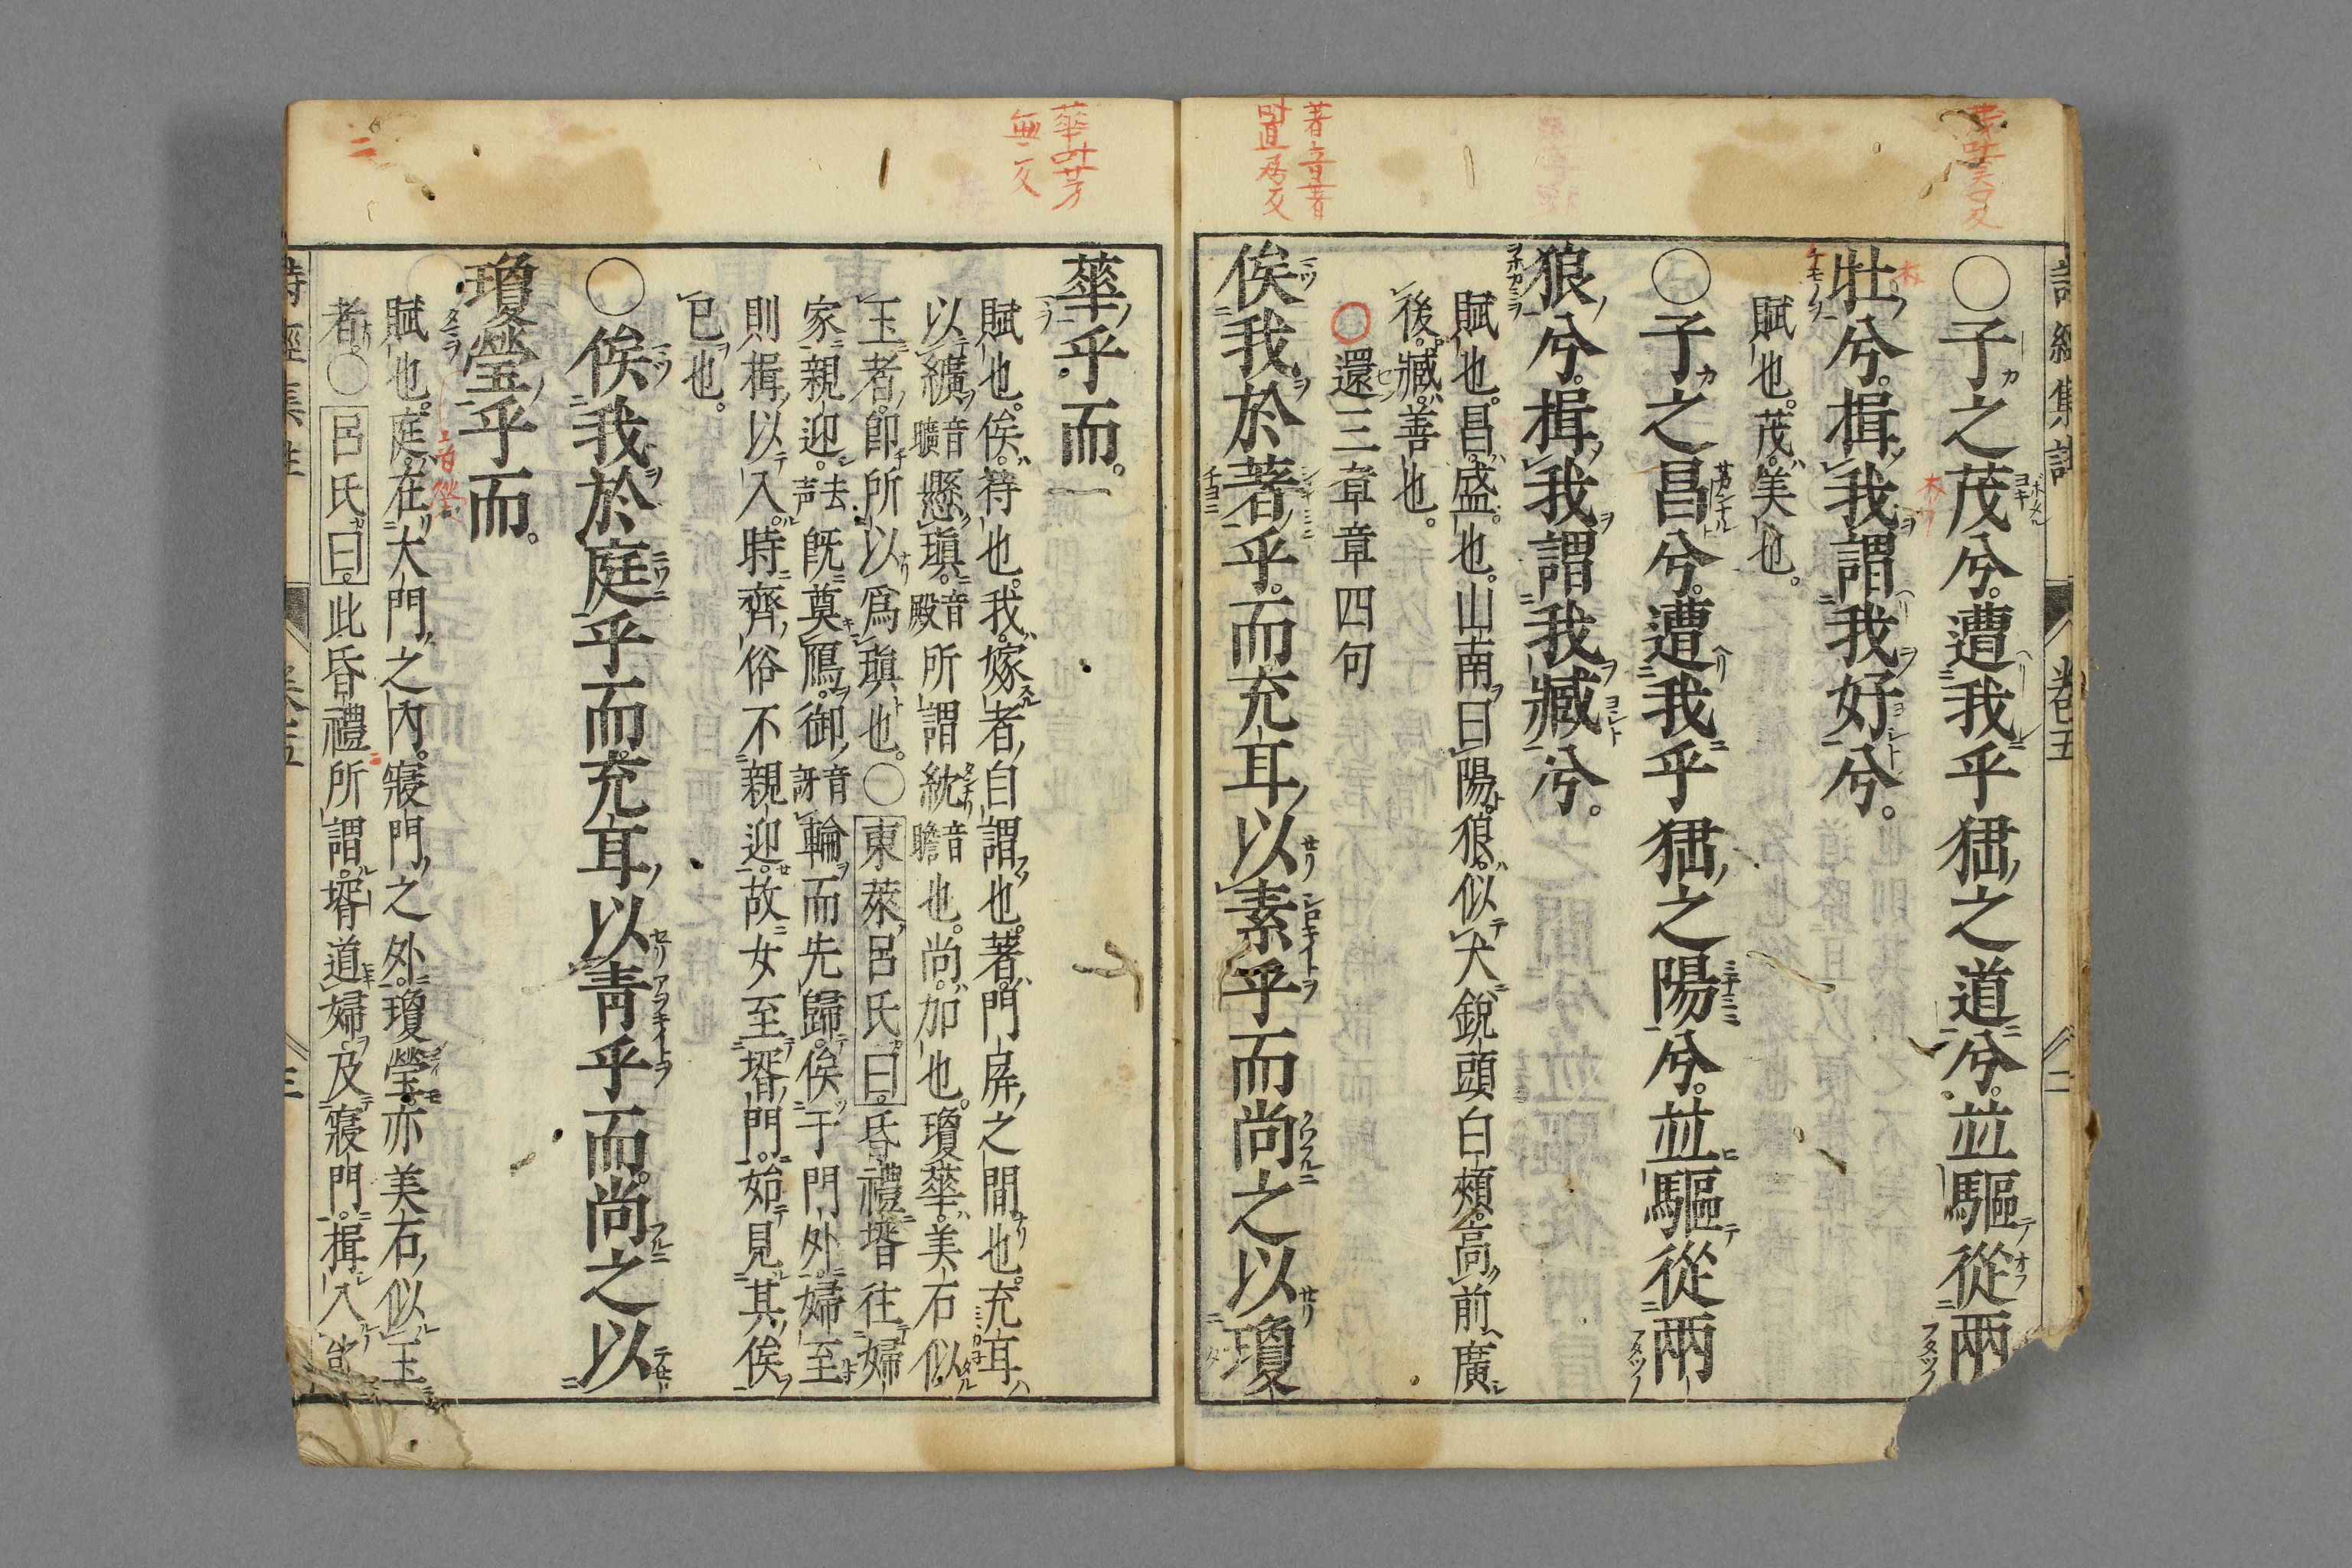 〇子之茂兮。遭我乎峱之道兮。並驅從兩
牡兮。揖我謂我好兮。
賦也。茂。美也。
〇子之昌兮。遭我乎峱之陽兮。並驅從兩
狼兮。揖我謂我臧兮。
賦也。昌。盛也。山南曰陽。狼。似犬銳頭白頰。高前廣
後。臧。善也。
〇還三章章四句
俟我於著乎。而充耳以素乎而尚之以瓊
華乎而。
賦也。俟。待也。我。嫁者自謂也。著。門屏之間也。充耳
以纊音曠懸瑱。音殿所謂紞音瞻也。尚。加也。瓊華。美石似
玉者。卽所以爲瑱也。〇東萊呂氏曰。昏禮壻往婦
家親迎。去声旣奠鴈。御音訝輪而先歸。俟于門外。婦至
則揖以入。時齊俗不親迎。故女至壻門。始見其俟
已也。
〇俟我於庭乎而。充耳以靑乎而。尚之以
瓊瑩乎而。
賦也。庭。在大門之內。寢門之外。瓊瑩亦美石似玉
者。〇呂氏曰。此昏禮所謂。壻道婦及寢門。揖入
詩經集註
卷五
二
卷五
三
著音著
華呼芳
無反
音榮